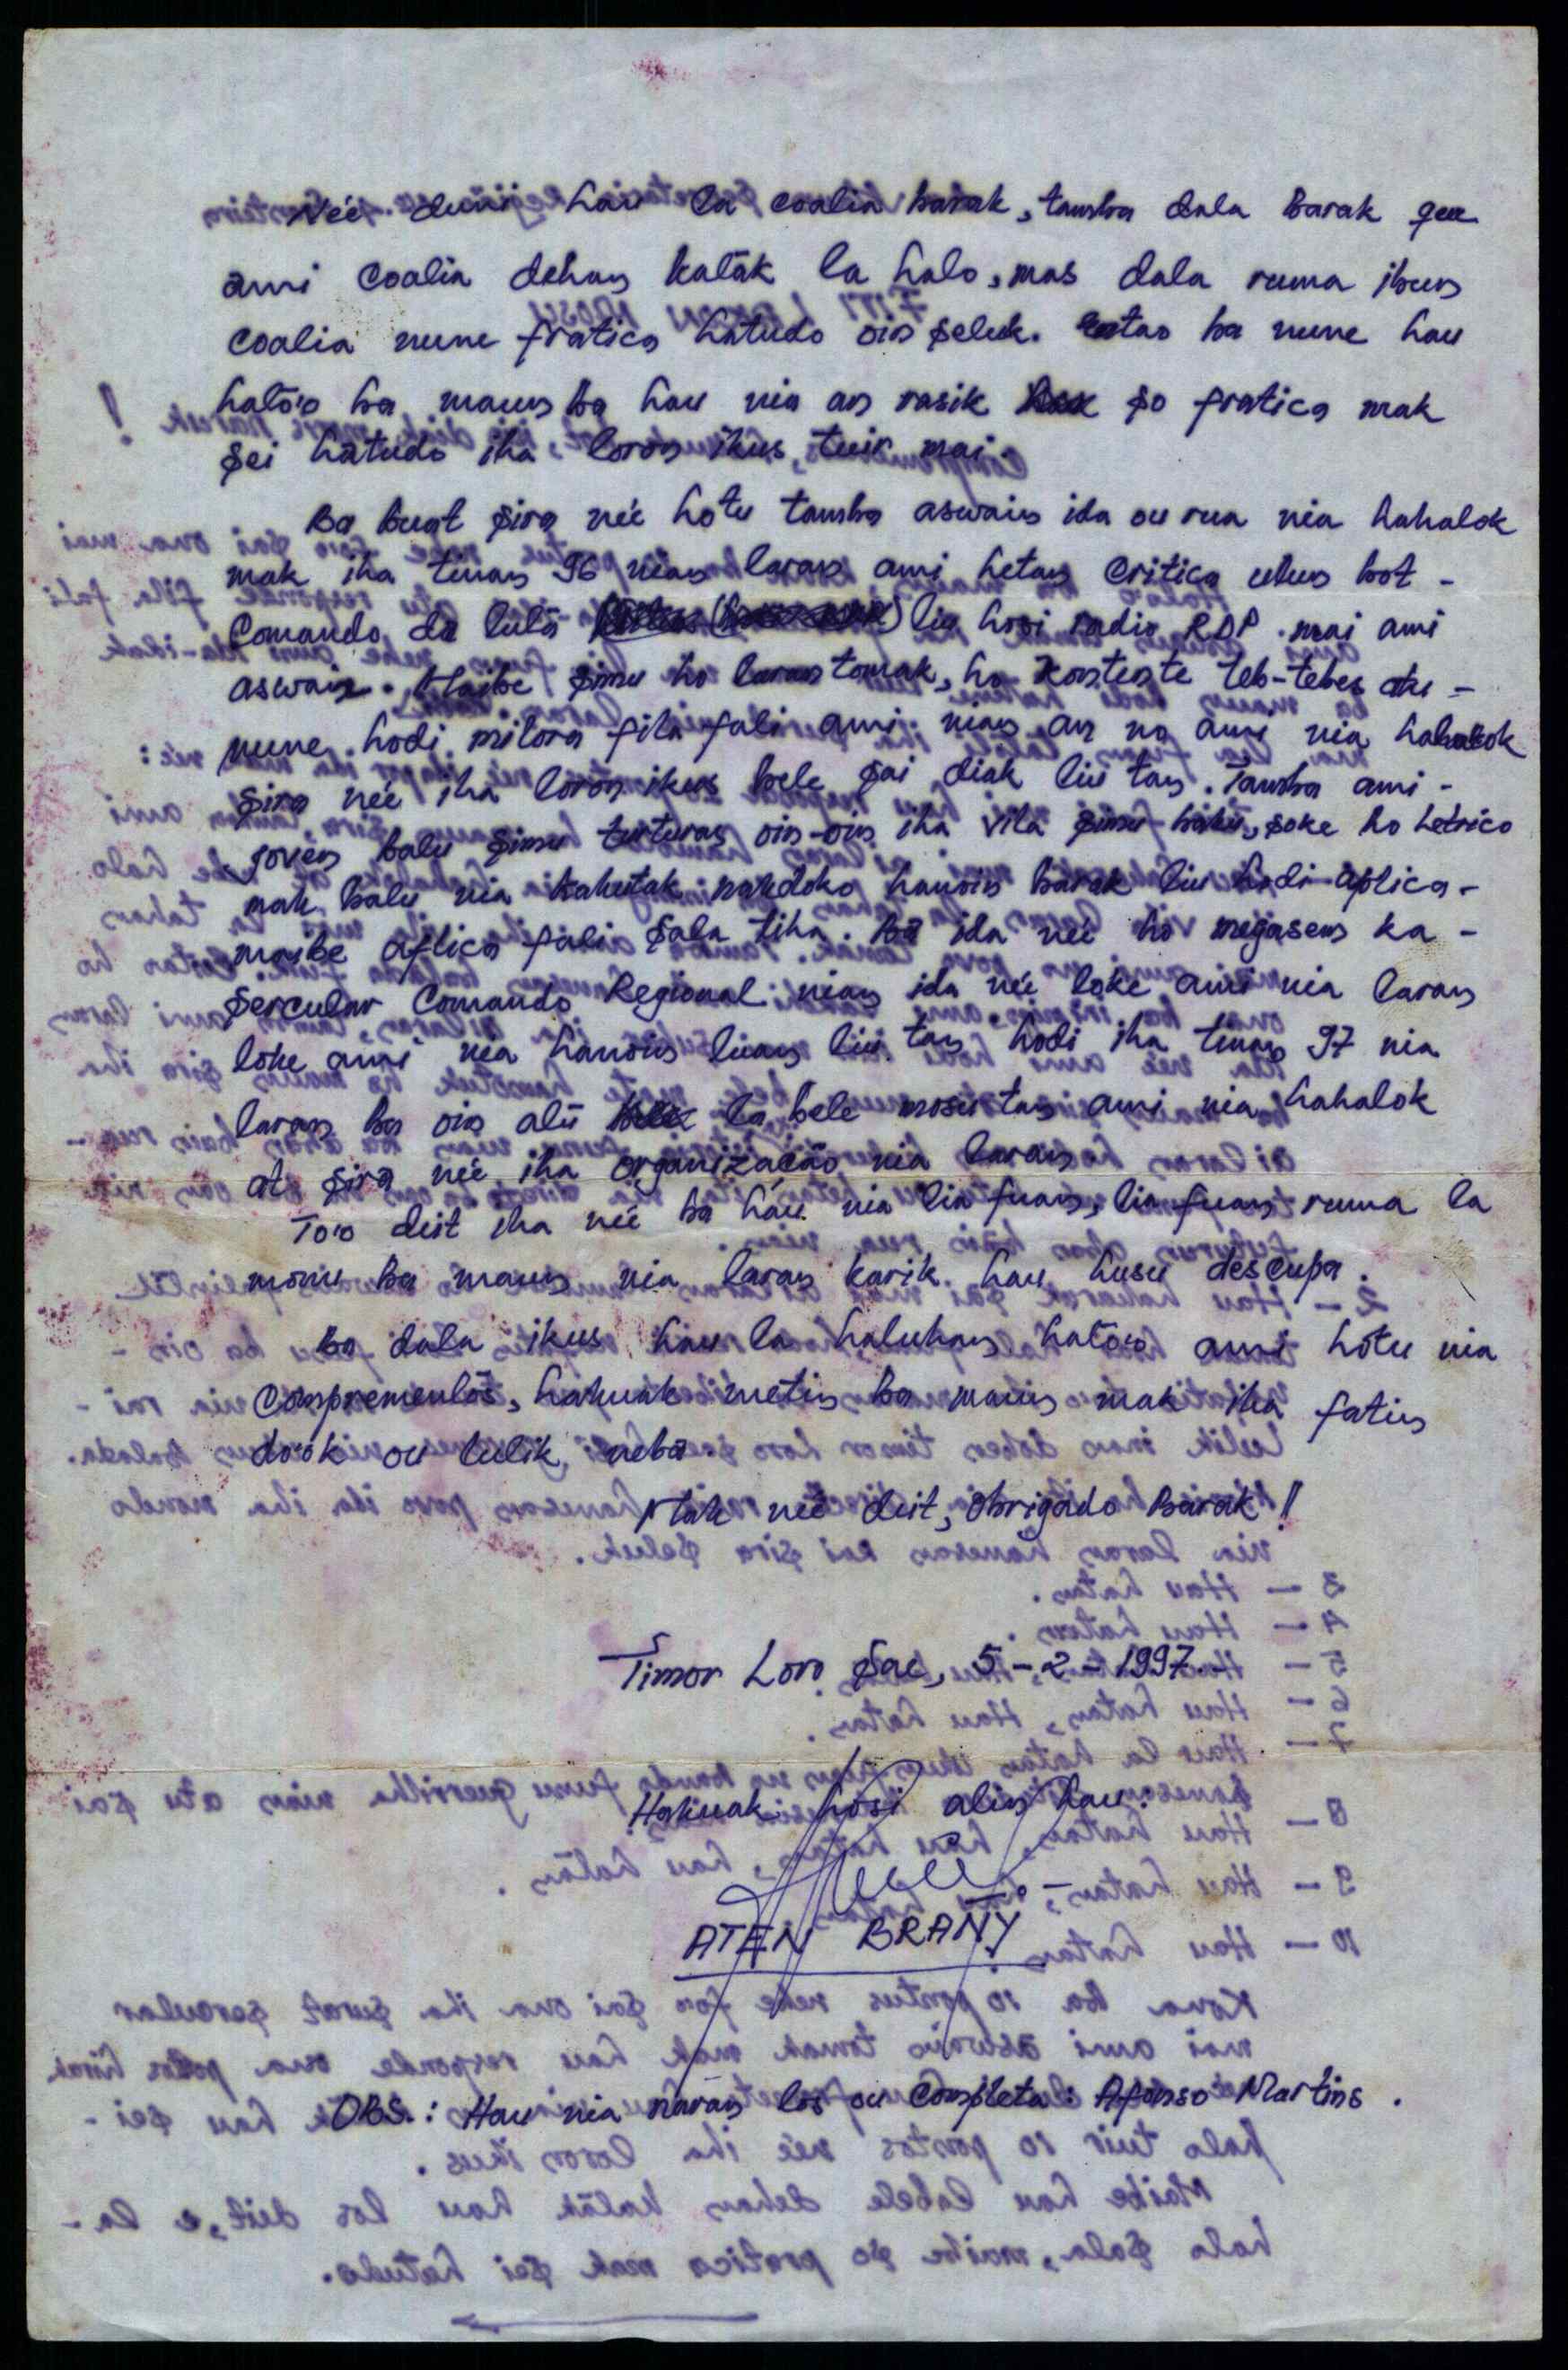 Neé duni hau la coalia barak, tamba dala barak que
ami coalia dehan katák la halo, mas dala ruma ibun
coalia nune pratica hatudo oin seluk. entao ba nune hau
ható'o ba maun ba hau nia an rasik so pratica mak
sei hatudo iha loron ikus tuir mai.
Ba buat sira neé hotu tamba aswain ida ou rua nia hahalok
mak iha tinan 96 nian laran ami hetan critica ukun bot -
Comando da luta liu hosi radio RDP. mai ami
aswain. Maibe simu ho laran tomak, ho kontente teb-tebes atu -
nune hodi milora fila fali ami nian an no ami nia hahalok
sira neé iha loron ikus bele sai diak liu tan. Tamba ami -
joven balu simu turturan oin-oin iha vila simu baku, soke ho letrico
mak balu nia kakutak nakdoko hanoin barak liu hodi aplica -
maibe aplica fali sala tiha. Ba ida neé ho megasen ka -
sercular Comando Regional nian ida neé loke ami nia laran
loke ami nia hanoin luan liu tan hodi iha tinan 97 nia
laran ba oin alü la bele mosu tan ami nia hahalok
at sira neé iha organização nia laran
To'o deit iha neé ba hau nia lia fuan, lia fuan ruma la
monu ba maun nia laran karik hau husu desculpa.
Ba dala ikus hau la haluhan ható'o ami hótu nia
Comprementos, hakuak metin ba maun mak iha fatin
do'ok ou lulik nebá
Mak neé deit, obrigado Barak!
Timor Loro Sae, 5-2-1997.-
Hakuak hosi alin hau:
ATEN BRANY
OBS.: Hau nia naran los ou completa: Afonso Martins.